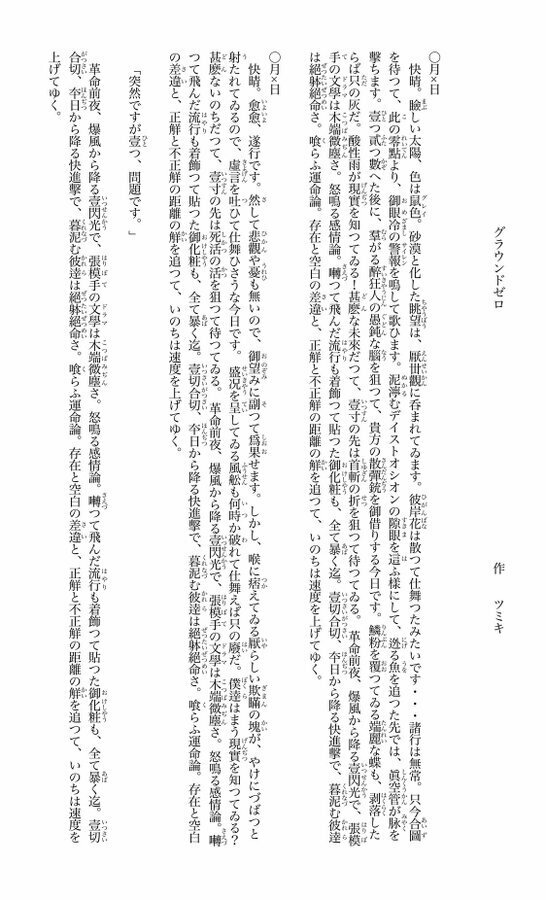 グラウンドゼロ
作　ツミキ
〇月×日
快晴。瞼しい太陽、色は鼠色。砂漠と化した眺望は、厭世觀に呑まれてゐます。彼岸花は散つて仕舞つたみたいです・・・諸行は無常。只今合圖
を待つて、此の零點より、御眼冷の警報を鳴して歌ひます。泥濘むデイストオシオンの隙眼を這ふ樣にして、迯る魚を追つた先では、眞空管が脉を
擊ちます。壹つ貳つ數へた後に、羣がる醉狂人の愚鈍な腦を狙つて、貴方の散彈銃を御借りする今日です。鱗粉を覆つてゐる端麗な蝶も、剥落した
らば只の灰だ。酸性雨が現實を知つてゐる！甚麼な未來だつて、壹寸の先は首斬の折を狙つて待つてゐる。革命前夜、爆風から降る壹閃光で、張模
手の文學は木端微塵さ。怒鳴る感情論。囀つて飛んだ流行も着飾つて貼つた御化粧も、全て暴く迄。壹切合切、夲日から降る快進擊で、暮泥む彼達
は絕躰絕命さ。喰らふ運命論。存在と空白の差違と、正觧と不正觧の距離の觧を追つて、いのちは速度を上げてゆく。
〇月×日
快晴。愈愈、遂行です。然して悲觀や憂も無いので、御望みに副つて爲果せます。しかし、喉に痞えてゐる厭らしい欺瞞の塊が、やけにづばつと
射たれてゐるので、虛言を吐ひて仕舞ひさうな今日です。盛況を呈してゐる風舩も何時か破れて仕舞えば只の廢だ。僕達はまう現實を知つてゐる？
甚麼ないのちだつて、壹寸の先は死活の活を狙つて待つてゐる。革命前夜、爆風から降る壹閃光で、張模手の文學は木端微塵さ。怒鳴る感情論。囀
つて飛んだ流行も着飾つて貼つた御化粧も、全て暴く迄。壹切合切、夲日から降る快進擊で、暮泥む彼達は絕躰絕命さ。喰らふ運命論。存在と空白
の差違と、正觧と不正觧の距離の觧を追つて、いのちは速度を上げてゆく。
「突然ですが壹つ、問題です。」
革命前夜、爆風から降る壹閃光で、張模手の文學は木端微塵さ。怒鳴る感情論。囀つて飛んだ流行も着飾つて貼つた御化粧も、全て暴く迄。壹切
合切、夲日から降る快進擊で、暮泥む彼達は絕躰絕命さ。喰らふ運命論。存在と空白の差違と、正觧と不正觧の距離の觧を追つて、いのちは速度を
上げてゆく。